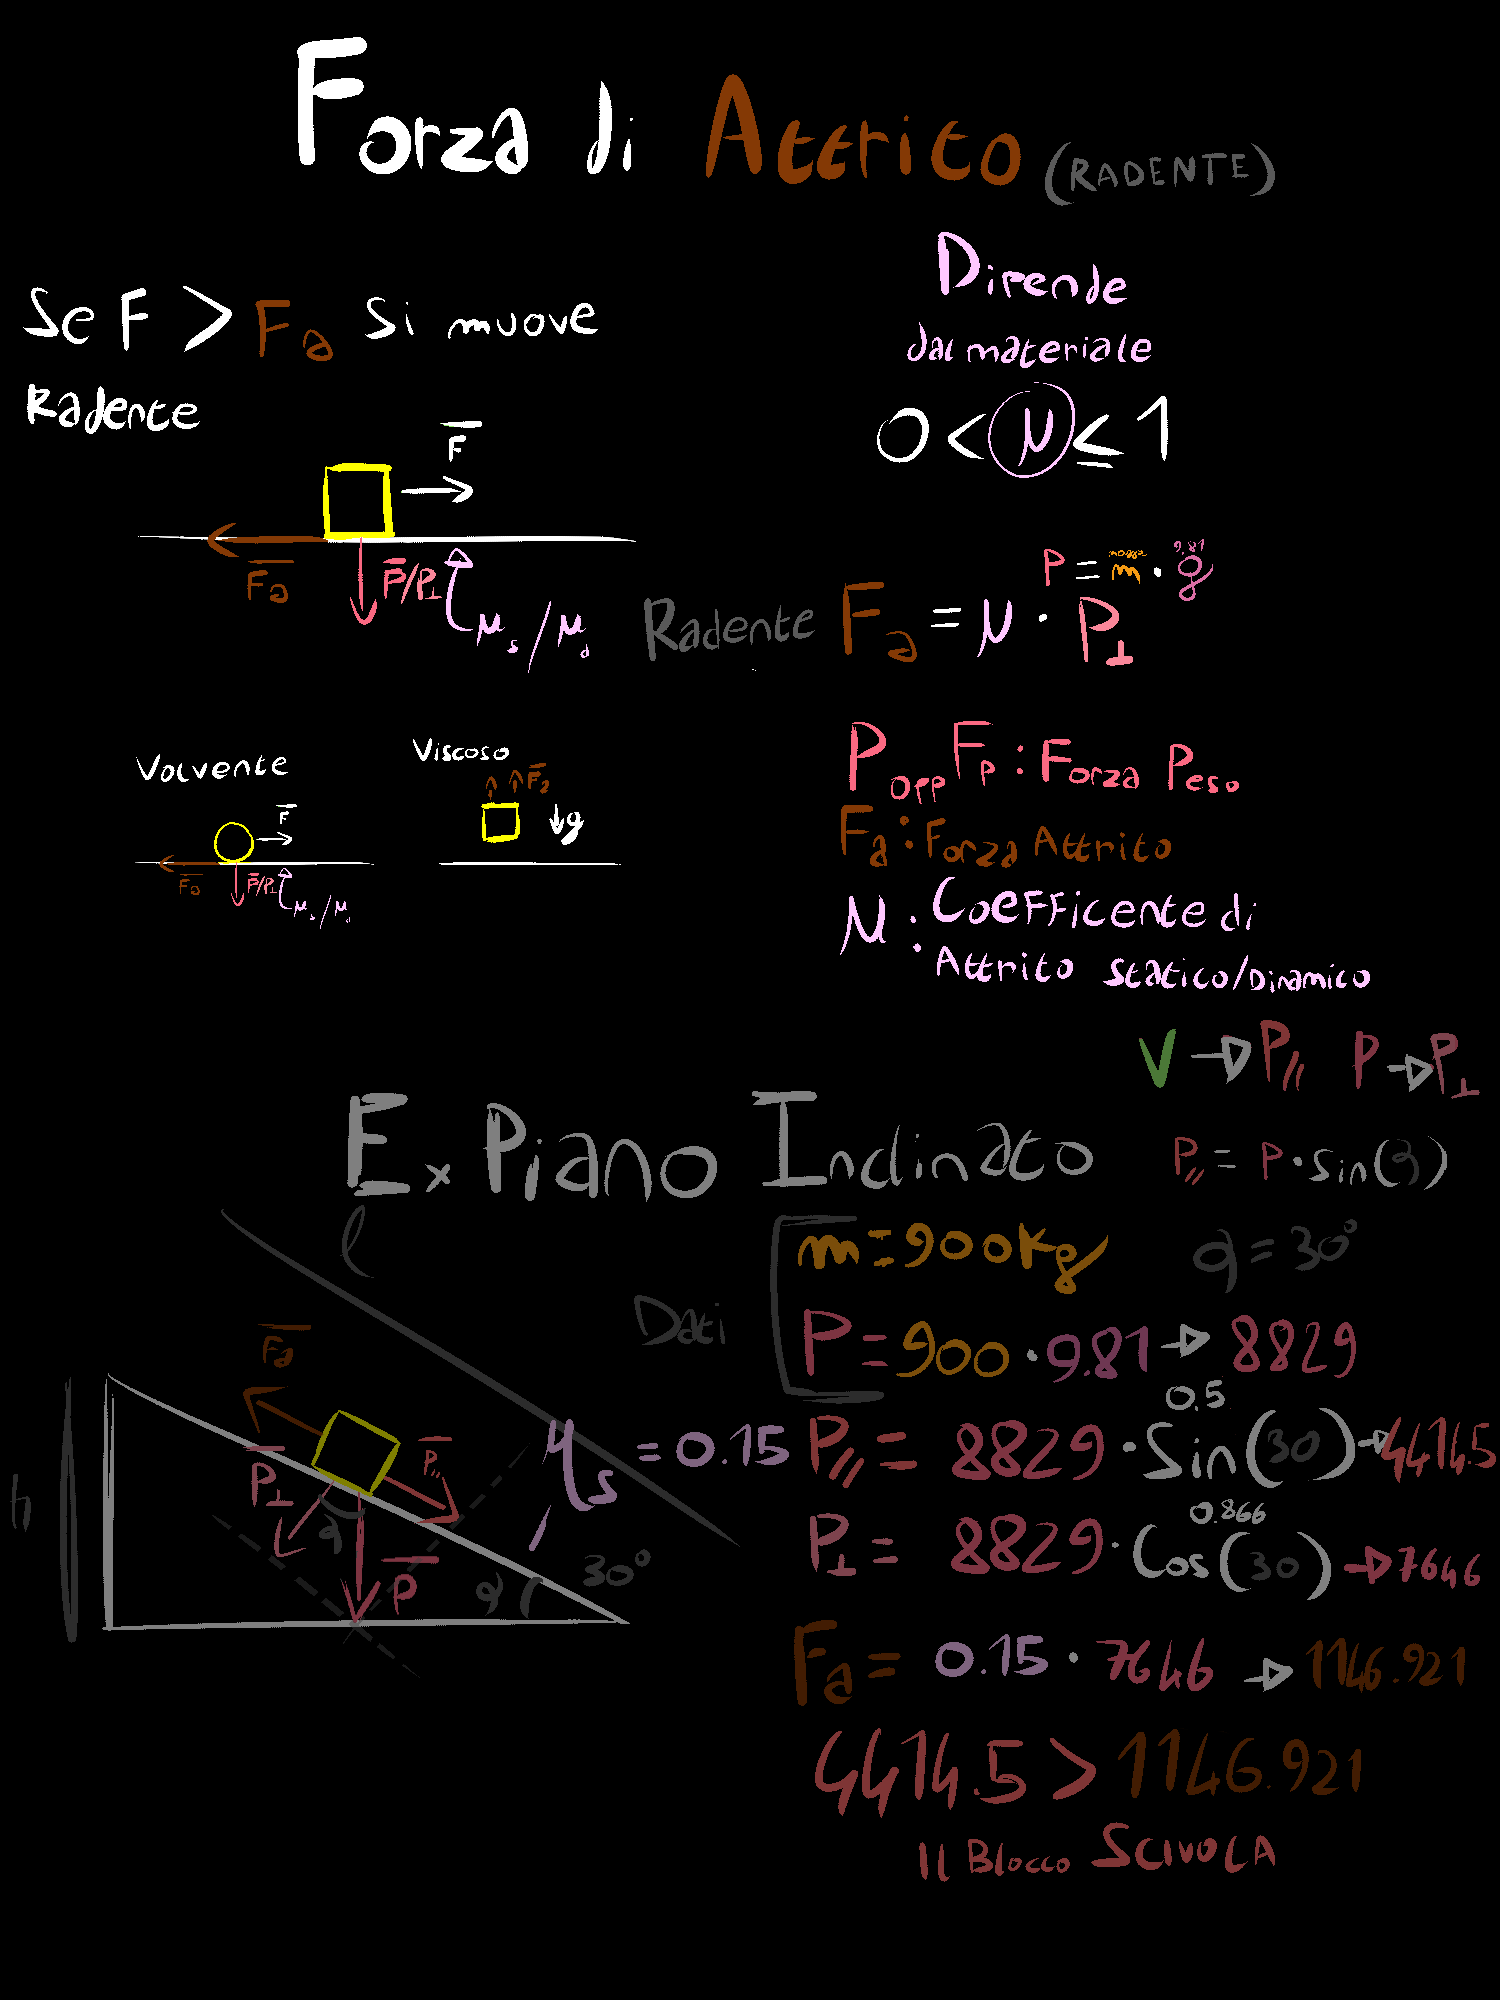 Forza di Attrito (RADENTE)
Se F > Fa si muove
Radente
F
Fa
P/P⊥
μs/μd
Dipende
dal materiale
0 < μ ≤ 1
P = m · g
massa
9.81
Radente Fa = μ · P⊥
Volvente
F
Fa
P/P⊥
μs/μd
Viscoso
Fa
g
P opp Fp : Forza Peso
Fa : Forza Attrito
μ : Coefficente di
Attrito statico/Dinamico
V → P// P → P⊥
Ex Piano Inclinato
P// = P · sin(α)
l
h
Fa
P⊥
P//
P
α
α
30°
μs = 0.15
Dati
m = 900kg α = 30°
P = 900 · 9.81 → 8829
0.5
P// = 8829 · Sin(30) → 4414.5
0.866
P⊥ = 8829 · Cos(30) → 7646
Fa = 0.15 · 7646 → 1146.921
4414.5 > 1146.921
Il Blocco SCIVOLA